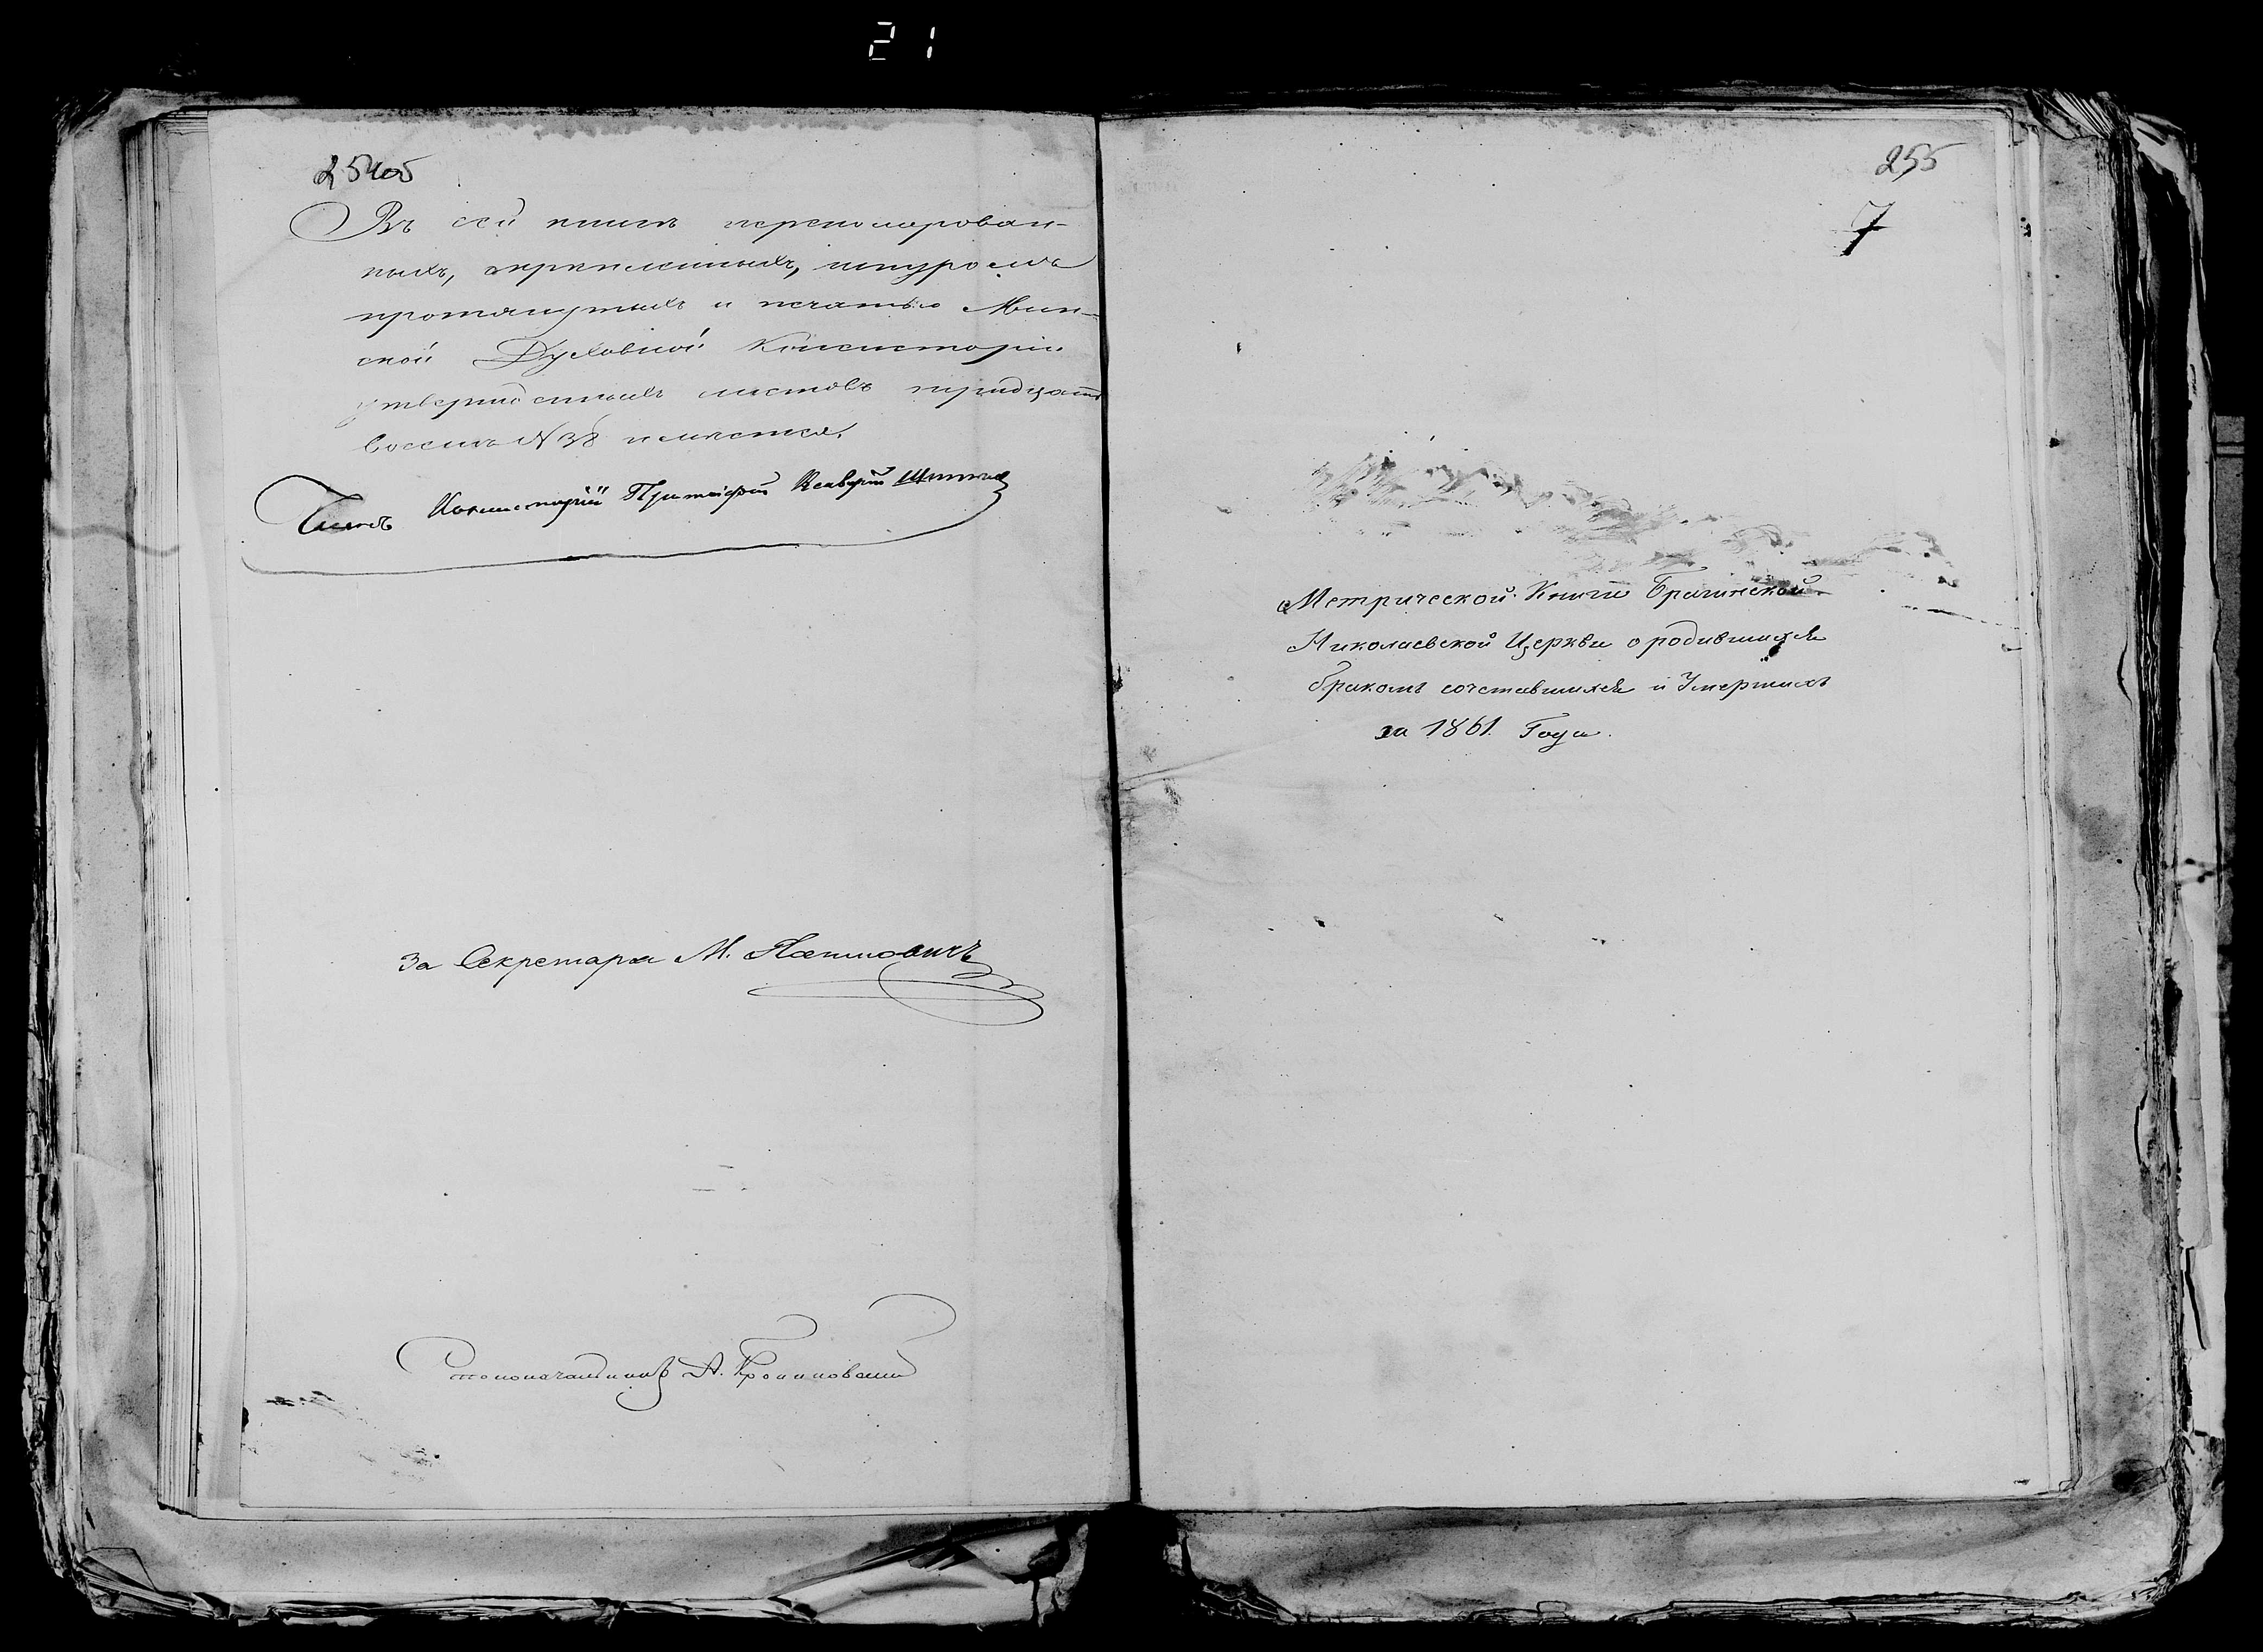 21
254об
Въ сей книгѣ перенумерован-
ныхъ, скрѣпленныхъ, шнуромъ
протянутыхъ и печатью Мин-
ской Духовной Консисторіи
утвержденныхъ листовъ тридцать
восемь № 38 имѣется.
Членъ Консисторіи Протоіерей
За Секретаря М.
Столоначальникъ А.
255
7
Метрической Книги Брагинской
Николаевской Церкви о родившихся
бракомъ сочетавшихся и Умершихъ
за 1861. Года.